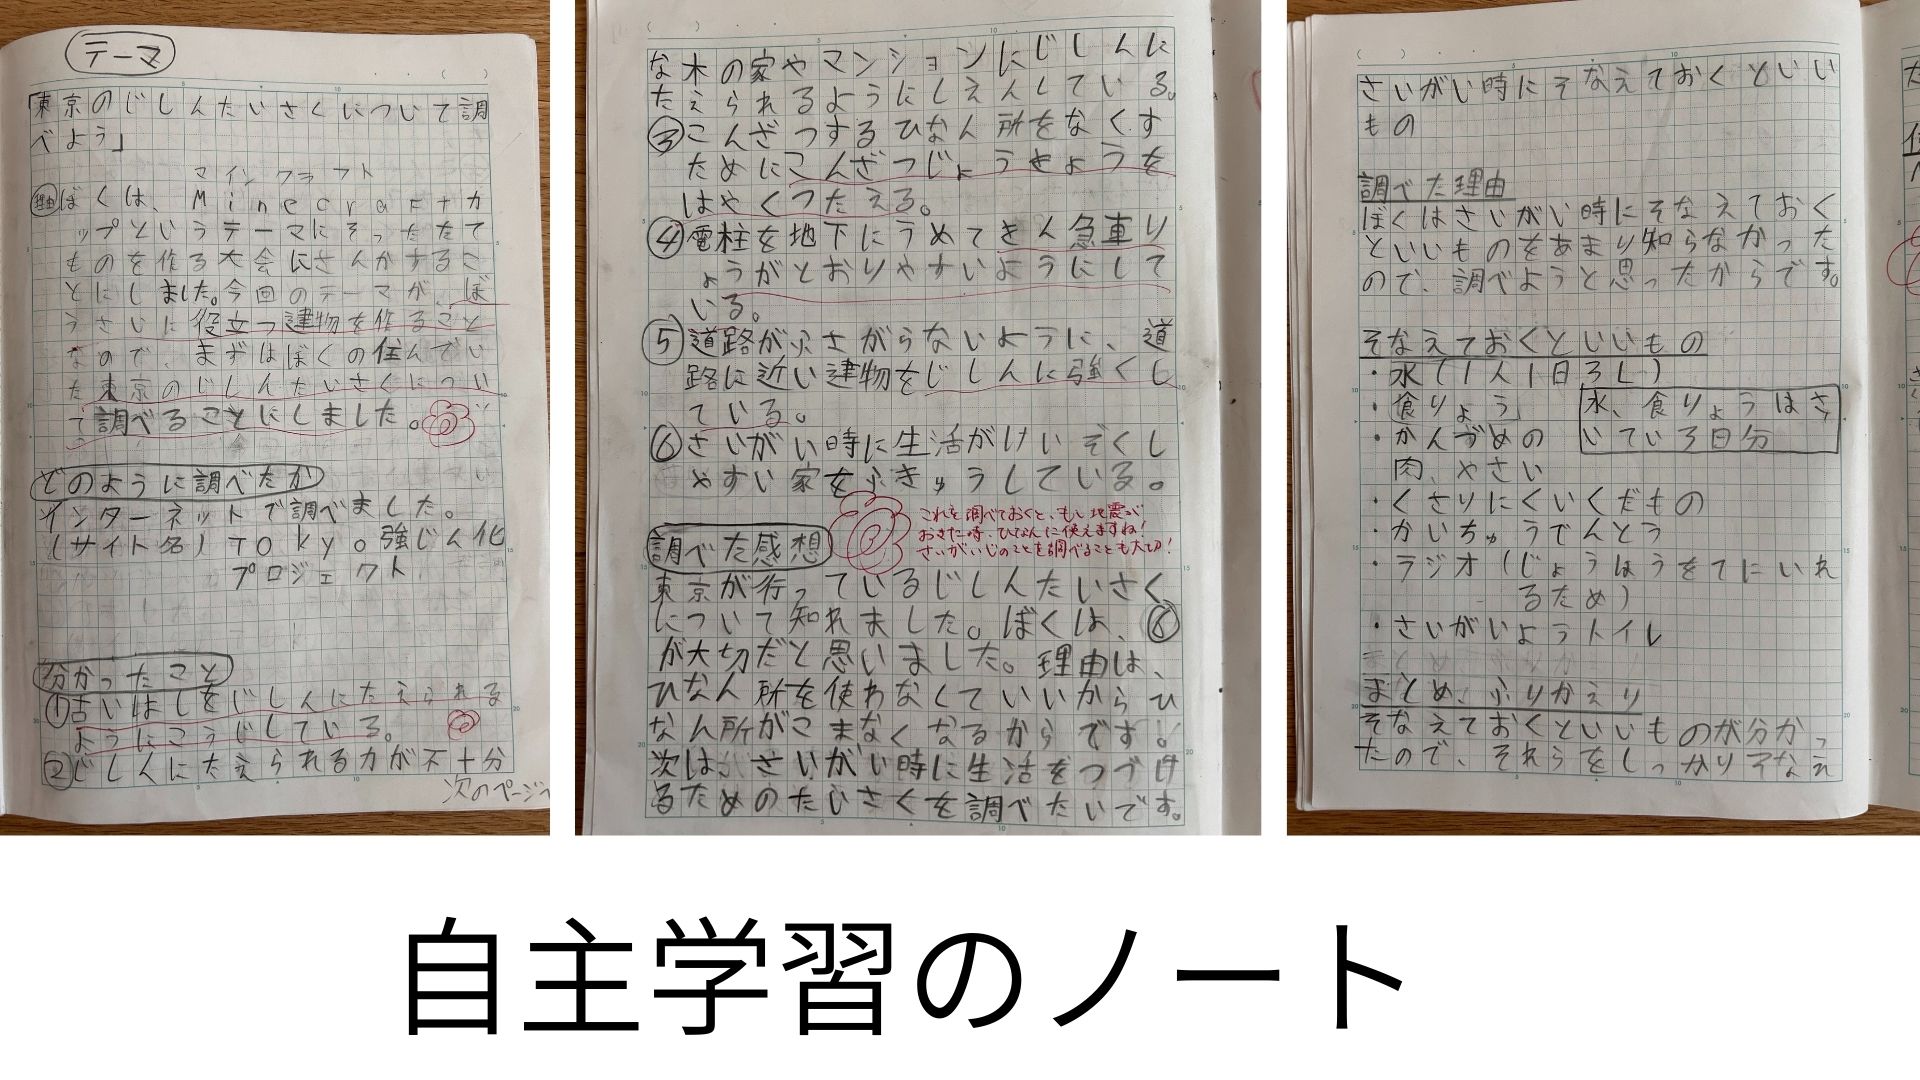 テーマ
「東京のじしんたいさくについて調
べよう」
マインクラフト
理由 ぼくは、Minecraftカ
ップというテーマにそったたて
ものを作る大会にさんかするこ
とにしました。今回のテーマが、ぼ
うさいに役立つ建物を作ること
なので、まずはぼくの住んでい
た東京のじしんたいさくについ
て調べることにしました。
どのように調べたか
インターネットで調べました。
(サイト名) TOkyo強じん化
プロジェクト
分かったこと
①古いはしをじしんにたえられる
ようにこうじしている。
②じしんにたえられる力が不十分
次のページへ
な木の家やマンションにじしんに
たえられるようにしえんしている。
③こんざつするひなん所をなくす
ためにこんざつじょうきょうを
はやくつたえる。
④電柱を地下にうめてきん急車り
ょうがとおりやすいようにして
いる。
⑤道路がふさがらないように、道
路に近い建物をじしんに強くし
ている。
⑥さいがい時に生活がけいぞくし
やすい家をふきゅうしている。
これを調べておくと、もし地震が
おきた時、ひなんに使えますね!
さいがいじのことを調べることも大切!
調べた感想
東京が行っているじしんたいさく
について知れました。ぼくは、⑥
が大切だと思いました。理由は、
ひなん所を使わなくていいからひ
なん所がこまなくなるからです。
次はさいがい時に生活をつづけ
るためのたいさくを調べたいです。
さいがい時にそなえておくといい
もの
調べた理由
ぼくはさいがい時にそなえておく
といいものをあまり知らなかった
ので、調べようと思ったからです。
そなえておくといいもの
・水(1人1日3L)
・食りょう
水、食りょうはさ
いてい3日分
・かんづめの
肉、やさい
・くさりにくいくだもの
・かいちゅうでんとう
・ラジオ(じょうほうをてにいれ
るため)
・さいがいようトイレ
まとめ、ふりかえり
そなえておくといいものが分かっ
たので、それらをしっかりそなえ
自主学習のノート